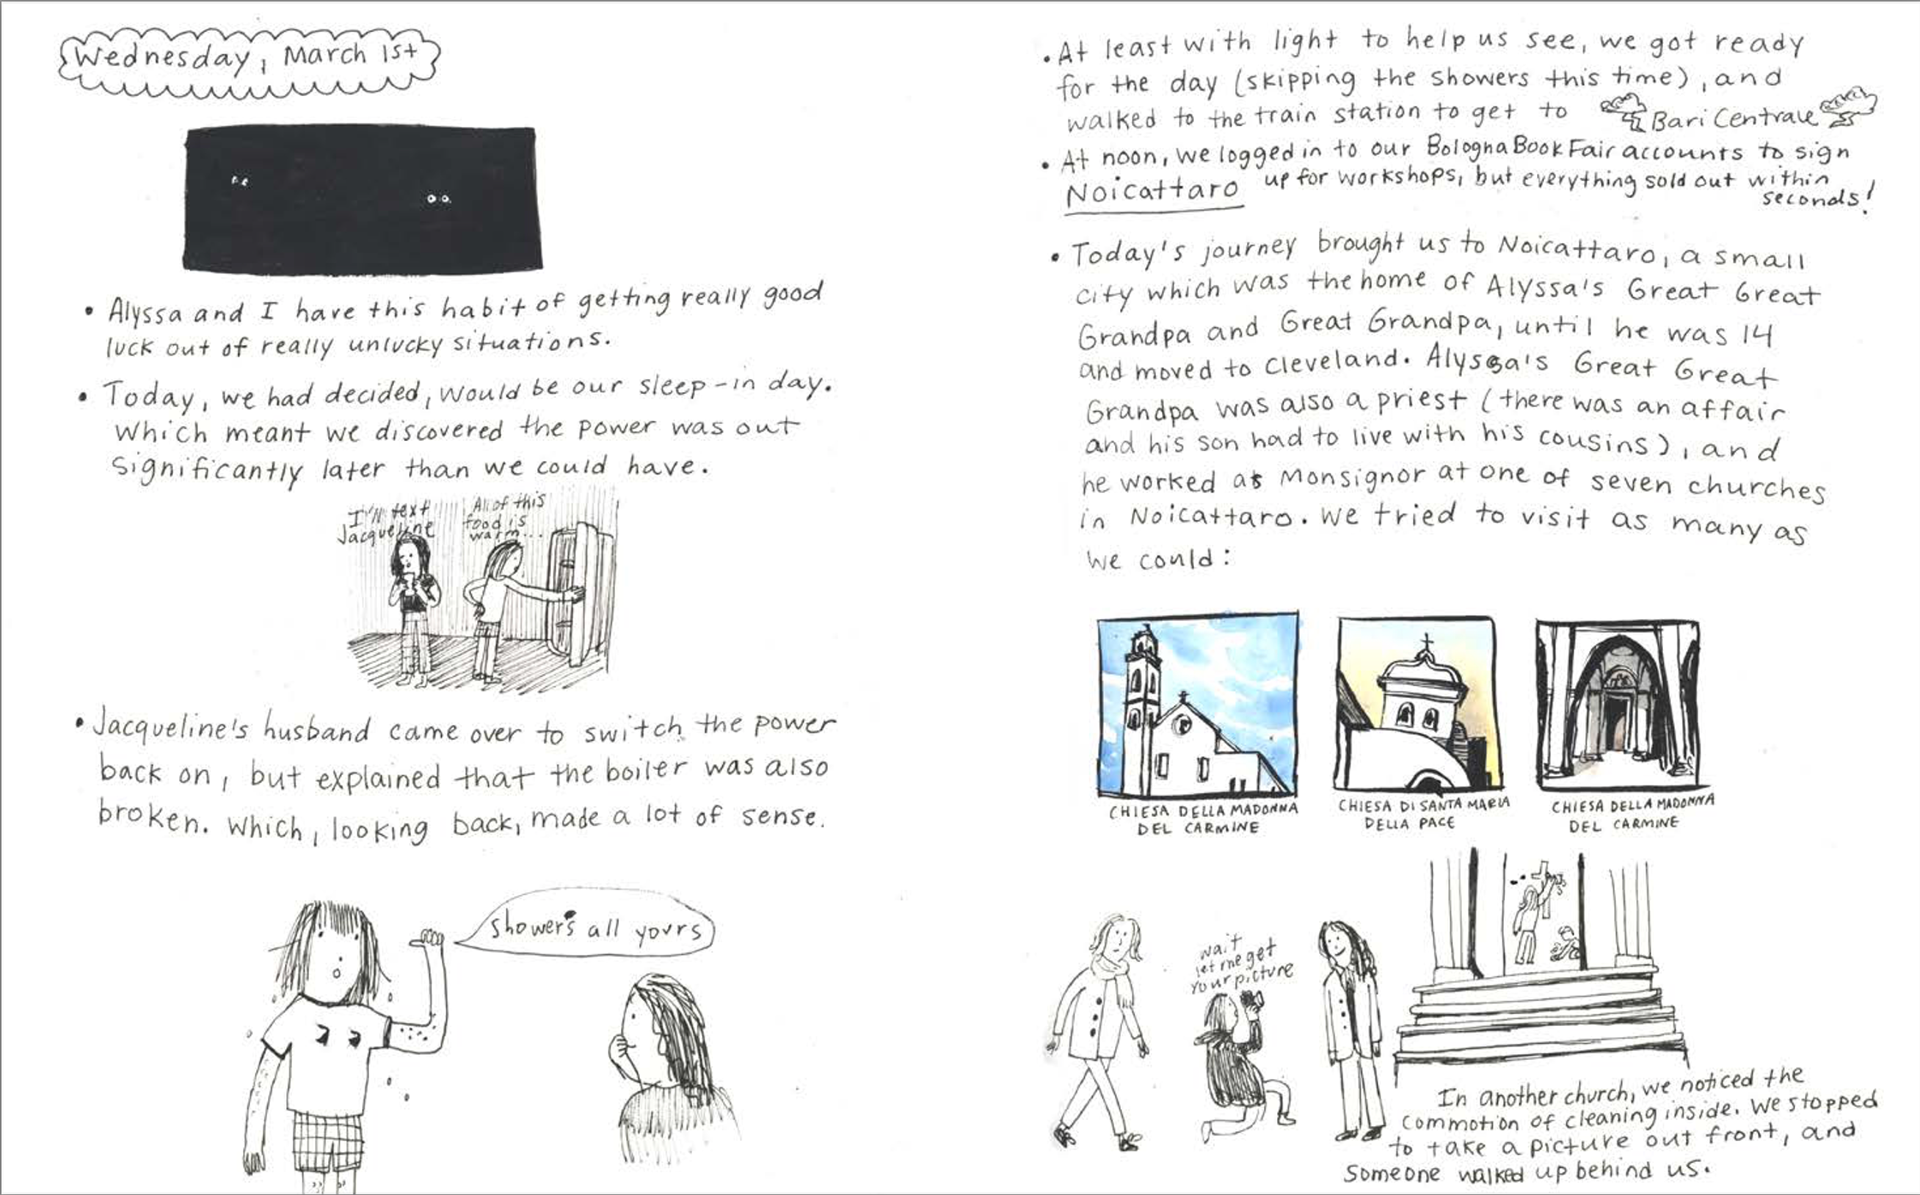 Wednesday, March 1st
• Alyssa and I have this habit of getting really good
luck out of really unlucky situations.
• Today, we had decided, would be our sleep-in day.
Which meant we discovered the power was out
significantly later than we could have.
I'll text
Jacqueline
All of this
food is
warm...
• Jacqueline's husband came over to switch the power
back on, but explained that the boiler was also
broken. Which, looking back, made a lot of sense.
Shower's all yours
• At least with light to help us see, we got ready
for the day (skipping the showers this time), and
walked to the train station to get to
Bari Centrale
• At noon, we logged in to our Bologna Book Fair accounts to sign
up for workshops, but everything sold out within
seconds!
Noicattaro
• Today's journey brought us to Noicattaro, a small
city which was the home of Alyssa's Great Great
Grandpa and Great Grandpa, until he was 14
and moved to Cleveland. Alyssa's Great Great
Grandpa was also a priest (there was an affair
and his son had to live with his cousins), and
he worked as Monsignor at one of seven churches
in Noicattaro. We tried to visit as many as
we could:
CHIESA DELLA MADONNA
DEL CARMINE
CHIESA DI SANTA MARIA
DELLA PACE
CHIESA DELLA MADONNA
DEL CARMINE
wait
let me get
your picture
In another church, we noticed the
commotion of cleaning inside. We stopped
to take a picture out front, and
someone walked up behind us.